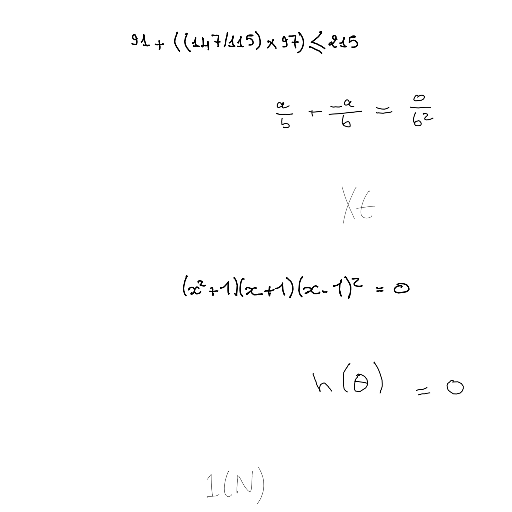 91 + ((147/115) × 97) ≤ 215
a/b + -a/b = 0/b²
Xt
(x²+1)(x+1)(x-1)² = 0
h(θ) = 0
1(N)